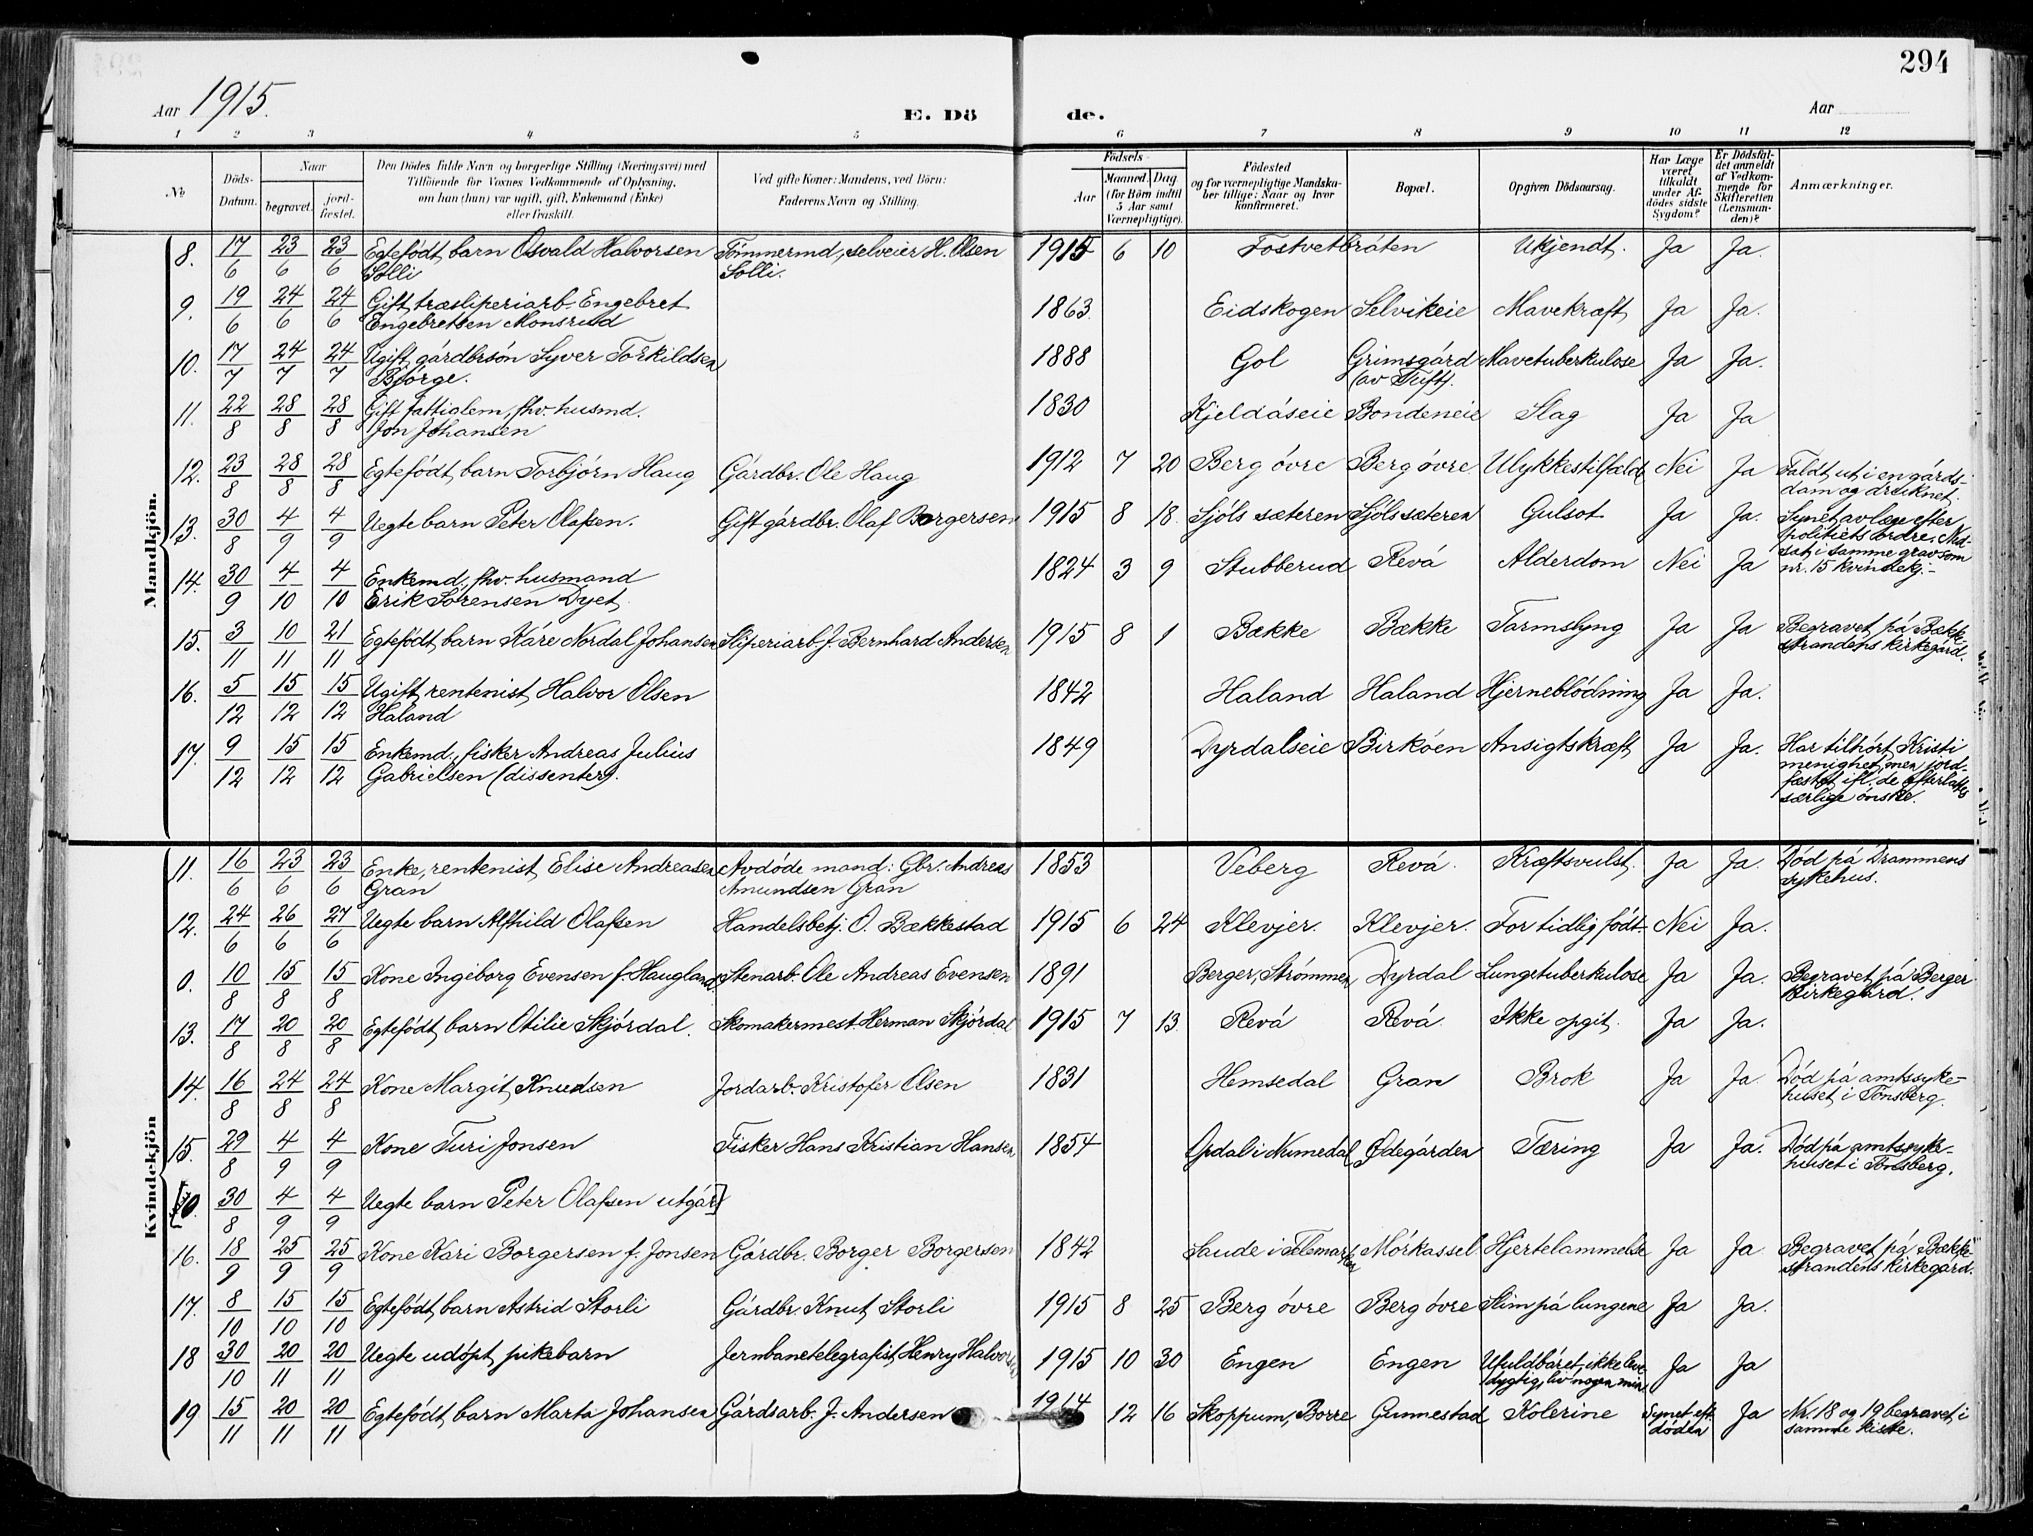 294
Aar 1915.
E. Dö de.
Aar
1 2 3 4 5 6 7 8 9 10 11 12
No
Döds-Datum.
Naar
begravet.
jord-fæstet.
Den Dödes fulde Navn og borgerlige Stilling (Næringsvei) med
Tilföiende for Voxnes Vedkommende af Oplysning,
om han (hun) var ugift, gift, Enkemand (Enke)
eller fraskilt.
Ved gifte Koner: Mandens, ved Börn:
Faderens Navn og Stilling.
Födsels-
Aar
Maaned. Dag.
(for Börn indtil
5 Aar samt
Værnepligtige).
Födested
og for værnepligtige Mandska-
ber tillige: Naar og hvor
konfirmeret.
Bopæl.
Opgiven Dödsaarsag.
Har Læge
været
tilkaldt
under Af-
dödes sidste
Sygdom?
Er Dödsfal-
det anmeldt
af Vedkom-
mende for
Skifteretten
(Lensman-
den)?
Anmærkninger.
Mandkjön.
8. 17/6 23/6 23/6 Egtefödt barn Osvald Halvorsen Tömmermd, selveier H. Olsen 1915 6 10 Fostvetbråten Ukjendt. Ja Ja.
Solli Solli.
9. 19/6 24/6 24/6 Gift træsliperiarb. Engebret 1863 Eidskogen Selvikeie Mavekræft Ja Ja.
Engebretsen Monsrud
10. 17/7 24/7 24/7 Ugift gårdbrsön Syver Torkildsen 1888 Gol Grimsgård Mavetuberkulose Ja Ja.
Björge. (av Tuft).
11. 22/8 28/8 28/8 Gift fattiglem, fhv. husmd. 1830 Kjeldåseie Bondeneie Slag Ja Ja
Jon Johansen
12. 23/8 28/8 28/8 Egtefödt barn Torbjörn Haug Gårdbr. Ole Haug 1912 7 20 Berg övre Berg övre Ulykkestilfælde Nei Ja Faldt ut i en gårds-
dam og druknet.
13. 30/8 4/9 4/9 Uegte barn Peter Olafsen. Gift gårdbr. Olaf Borgersen 1915 8 18 Sjöls sæteren Sjöls sæteren Gulsot Ja Ja. Synet av læge efter
politiets ordre. Ned-
sat i samme grav som
nr. 15 kvindekj.
14. 30/9 4/10 4/10 Enkemd, fhv. husmand 1824 3 9 Stubberud Revå Alderdom Nei Ja
Erik Sörensen Dyet.
15. 3/11 10/11 21/11 Egtefödt barn Kåre Nordal Johansen Sliperiarb. J. Bernhard Andersen 1915 8 1 Bække Bække Tarmslyng Ja Ja Begravet på Bække-
strandens kirkegård.
16. 5/12 15/12 15/12 Ugift rentenist Halvor Olsen 1842 Haland Haland Hjerneblödning Ja Ja.
Haland
17. 9/12 15/12 15/12 Enkemd, fisker Andreas Julius 1849 Dyrdalseie Birköen Ansigtskræft Ja Ja. Har tilhört Kristi
Gabrielsen (dissenter). menighet, men jord-
fæstet ifl. de efterlattes
særlige önske.
Kvindekjön
11. 16/6 23/6 23/6 Enke, rentenist Elise Andreasen Avdöde mand: Gbr. Andreas 1853 Veberg Revå. Kræftsvulst. Ja Ja. Död på Drammens
Gran Amundsen Gran sykehus.
12. 24/6 26/6 27/6 Uegte barn Alfhild Olafsen Handelsbetj. O. Bækkestad 1915 6 24 Klevjer. Klevjer. For tidlig födt. Nei Ja.
0. 10/8 15/8 15/8 Kone Ingeborg Evensen f. Haugland Stenarb. Ole Andreas Evensen 1891 Berger, Strømmen Dyrdal Lungetuberkulose Ja Ja. Begravet på Berger
kirkegård.
13. 17/8 20/8 20/8 Egtefödt barn Otilie Skjördal. Skomakermest. Herman Skjördal 1915 7 13. Revå Revå. Ikke opgit. Ja Ja.
14. 16/8 24/8 24/8 Kone Margit Knudsen Jordarb. Kristofer Olsen 1831 Hemsedal Gran Brok Ja Ja. Död på amtssyke-
huset i Tönsberg.
15. 29/8 4/9 4/9 Kone Turi Jonsen Fisker Hans Kristian Hansen 1854 Opdal i Numedal Ødegården Tæring Ja Ja. Död på amtssyke-
huset i Tönsberg.
[0. 30/8 4/9 4/9 Uegte barn Peter Olafsen utgår]
16. 18/9 25/9 25/9 Kone Kari Borgersen f. Jonsen Gårdbr. Borger Borgersen 1842 Saude i Telemarken Mörkassel Hjertelammelse Ja Ja. Begravet på Bække-
strandens kirkegård.
17. 8/10 15/10 15/10 Egtefödt barn Astrid Storli Gårdbr. Knut Storli 1915 8 25 Berg övre Berg övre Slim på lungene Ja Ja.
18 30/10 20/11 20/11 Uegte udöpt pikebarn Jernbanetelegrafist Henry Halvorsen 1915 10 30 Engen Engen Ufuldbåret, ikke leve- Ja Ja
dygtig, liv nogen min.
19 15/11 20/11 20/11 Egtefödt barn Marta Johansen Gårdsarb. J. Andersen 1914 12 16 Skoppum, Borre Gunnestad Kolerine Synet eft. Ja Nr. 18 og 19 begravet i
döden samme kiste.